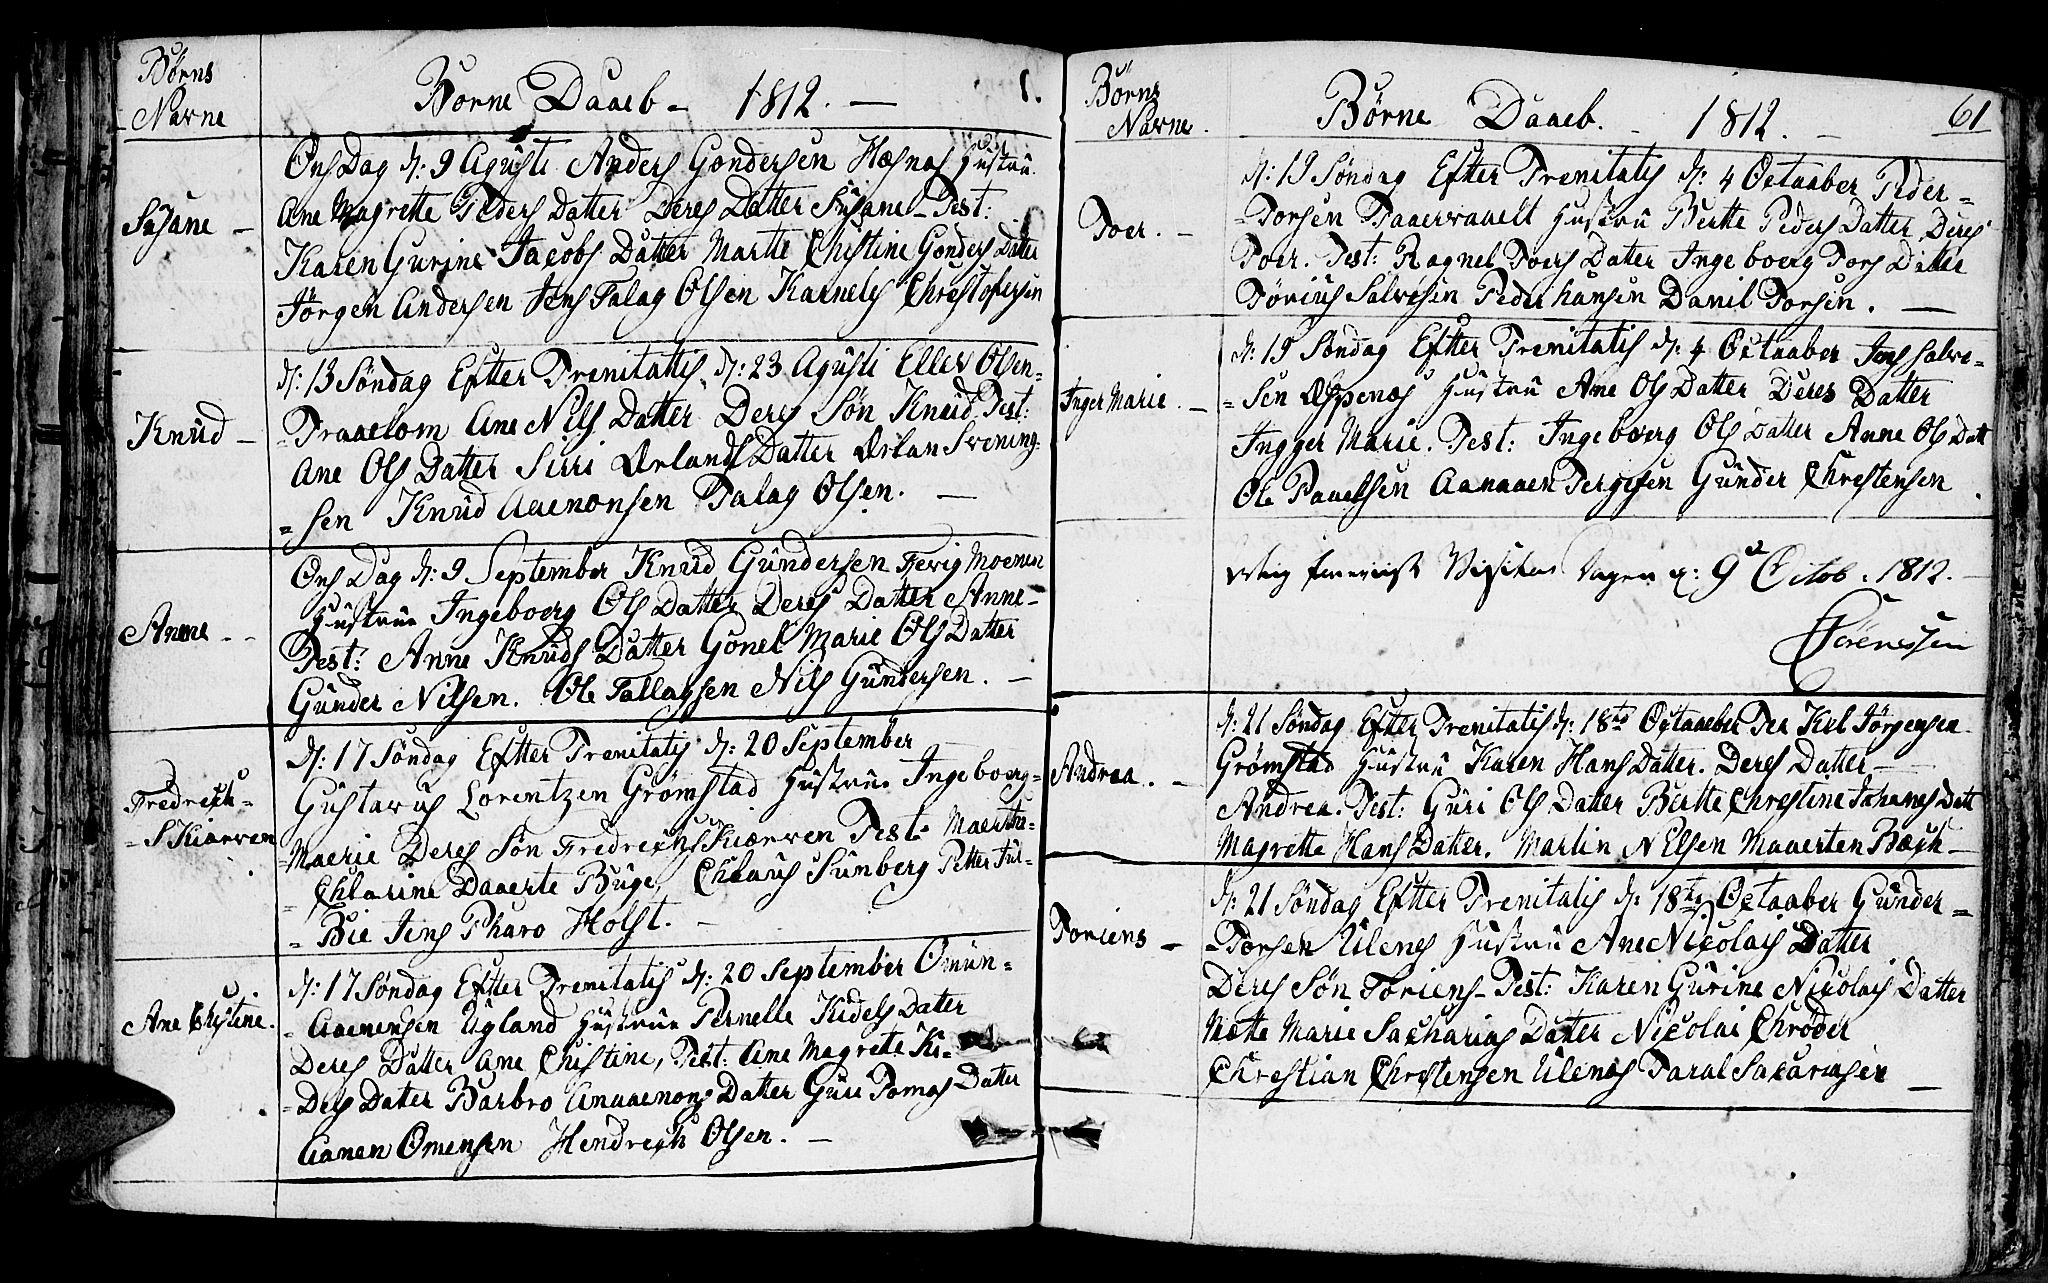 Børns
Navne
Børne Daaeb - 1812. —
1.
Susane -
Ons Dag d: 9 Agusti Anders Gondersen Hæsnæs Hustru
Ane Magrette Peders Datter Deres Datter Susane - Test:
Karen Gurine Jacobs Datter Marthe Christine Gonders Datter
Jørgen Andersen Jens Talag Olsen Karnels Christofersen
Knud -
d: 13 Søndag Efter Trenitattis d: 23 Agusti Ellev Olsen =
= Fraaelom Ane Nils Datter Deres Søn Knud Test:
Ane Ols Datter Sirri Ørlands Datter Ørlan Svening
= sen Knud Aamonsen Talag Olsen. —
Anne - -
Ons Dag d: 9 September Knud Gundersen Fevig Moenen
Hustrue Ingeboerg Ols Datter Deres Datter Anne -
Test: Anne Knuds Datter Gonel Marie Ols Datter
Gunder Nilsen. Ole Tallagsen Nils Gundersen. —
Fredrech =
= S Kiærven
d: 17 Søndag Efter Trenitatis d: 20 September
Gustavus Lorentzen Grømstad Hustrue Ingeboerg =
Maerie Deres Søn Fredrech Skiærven Test: Maerthe =
= Chlarine Daaerte Buge, Chlaus Sunberg Petter Jul =
= Bie Jens Pharo Holst. —
Ane Christine.
d: 17 Søndag Efter Trenitatis d: 20 September Omun =
= Aamensen Ugland Hustrue Pernelle Kidels Dater
Deres Datter Ane Christine, Test: Ane Magrete Ki =
= Dels Dater Barbro Anaaenons Datter Guri Tomas Datter
Aanen Omensen Hendrech Olsen. —
Børns
Navne.
Børne Daaeb. - 1812. —
61
Toer. -
d: 19 Søndag Efter Trenitatis d: 4 Octaaber Peder =
= Torsen Taaervaaelt Hustru Berte Peders Datter Deres
Toer. Test: Ragnel Toers Datter Ingeboerg Tors Datter
Tørius Salvesen Peder Hansen Danil Torsen. —
Inger Marie. -
d: 19 Søndag Efter Trenitatis d: 4 Octaaber Jens Salve =
= Sen Øspenæs Hustru Ane Ols Datter Deres Datter
Ingger Marie. Test: Ingeboerg Ols Datter Anne Ols Datt
Ole Paaelsen Aanaaen Tergesen Gunder Chrestensen.
Visitas Dagen d: 9d Octob. 1812. -
Sørenssen
Andrea. -
d: 21 Søndag Efter Trenitatis d: 18te Octaaeber Ter Kiel Jørgensen
Grømstad Hustru Karen Hans Datter. Deres Datter —
Andrea. Test: Guri Ols Datter Berthe Chrestine Johanes Datt
Magrette Hans Datter. Martin Nelsen Maaerten Bæch —
Toriens -
d: 21 Søndag Efter Trenitatis d: 18te Octaaber Gunder =
= Torsen Ulenes Hustru Ane Nicolais Datter
Deres Søn Toriens - Test: Karen Gurine Nicolais Datter
Mætte Marie Sacharias Datter Nicolai Chrøder
Chrestian Chrestensen Ulenes Taral Sacariasen —